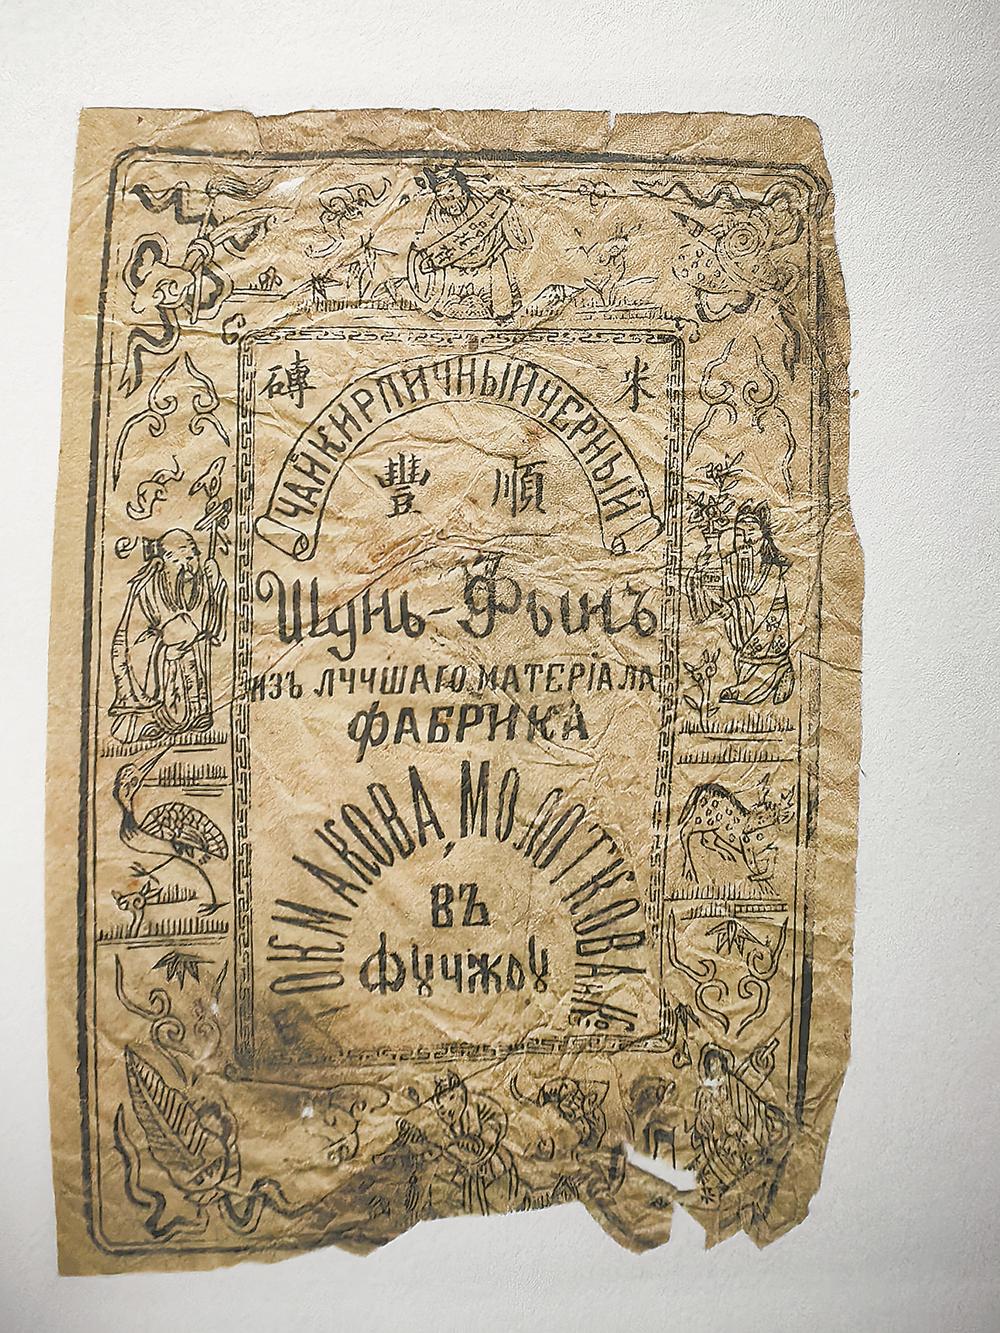 米磚
ЧАЙ КИРПИЧНЫЙ ЧЕРНЫЙ
順豐
Шунь-Фынъ
ИЗЪ ЛУЧШАГО МАТЕРІАЛА
ФАБРИКА
ТОКМАКОВА, МОЛОТКОВА и Ко
ВЪ
Фучжоу